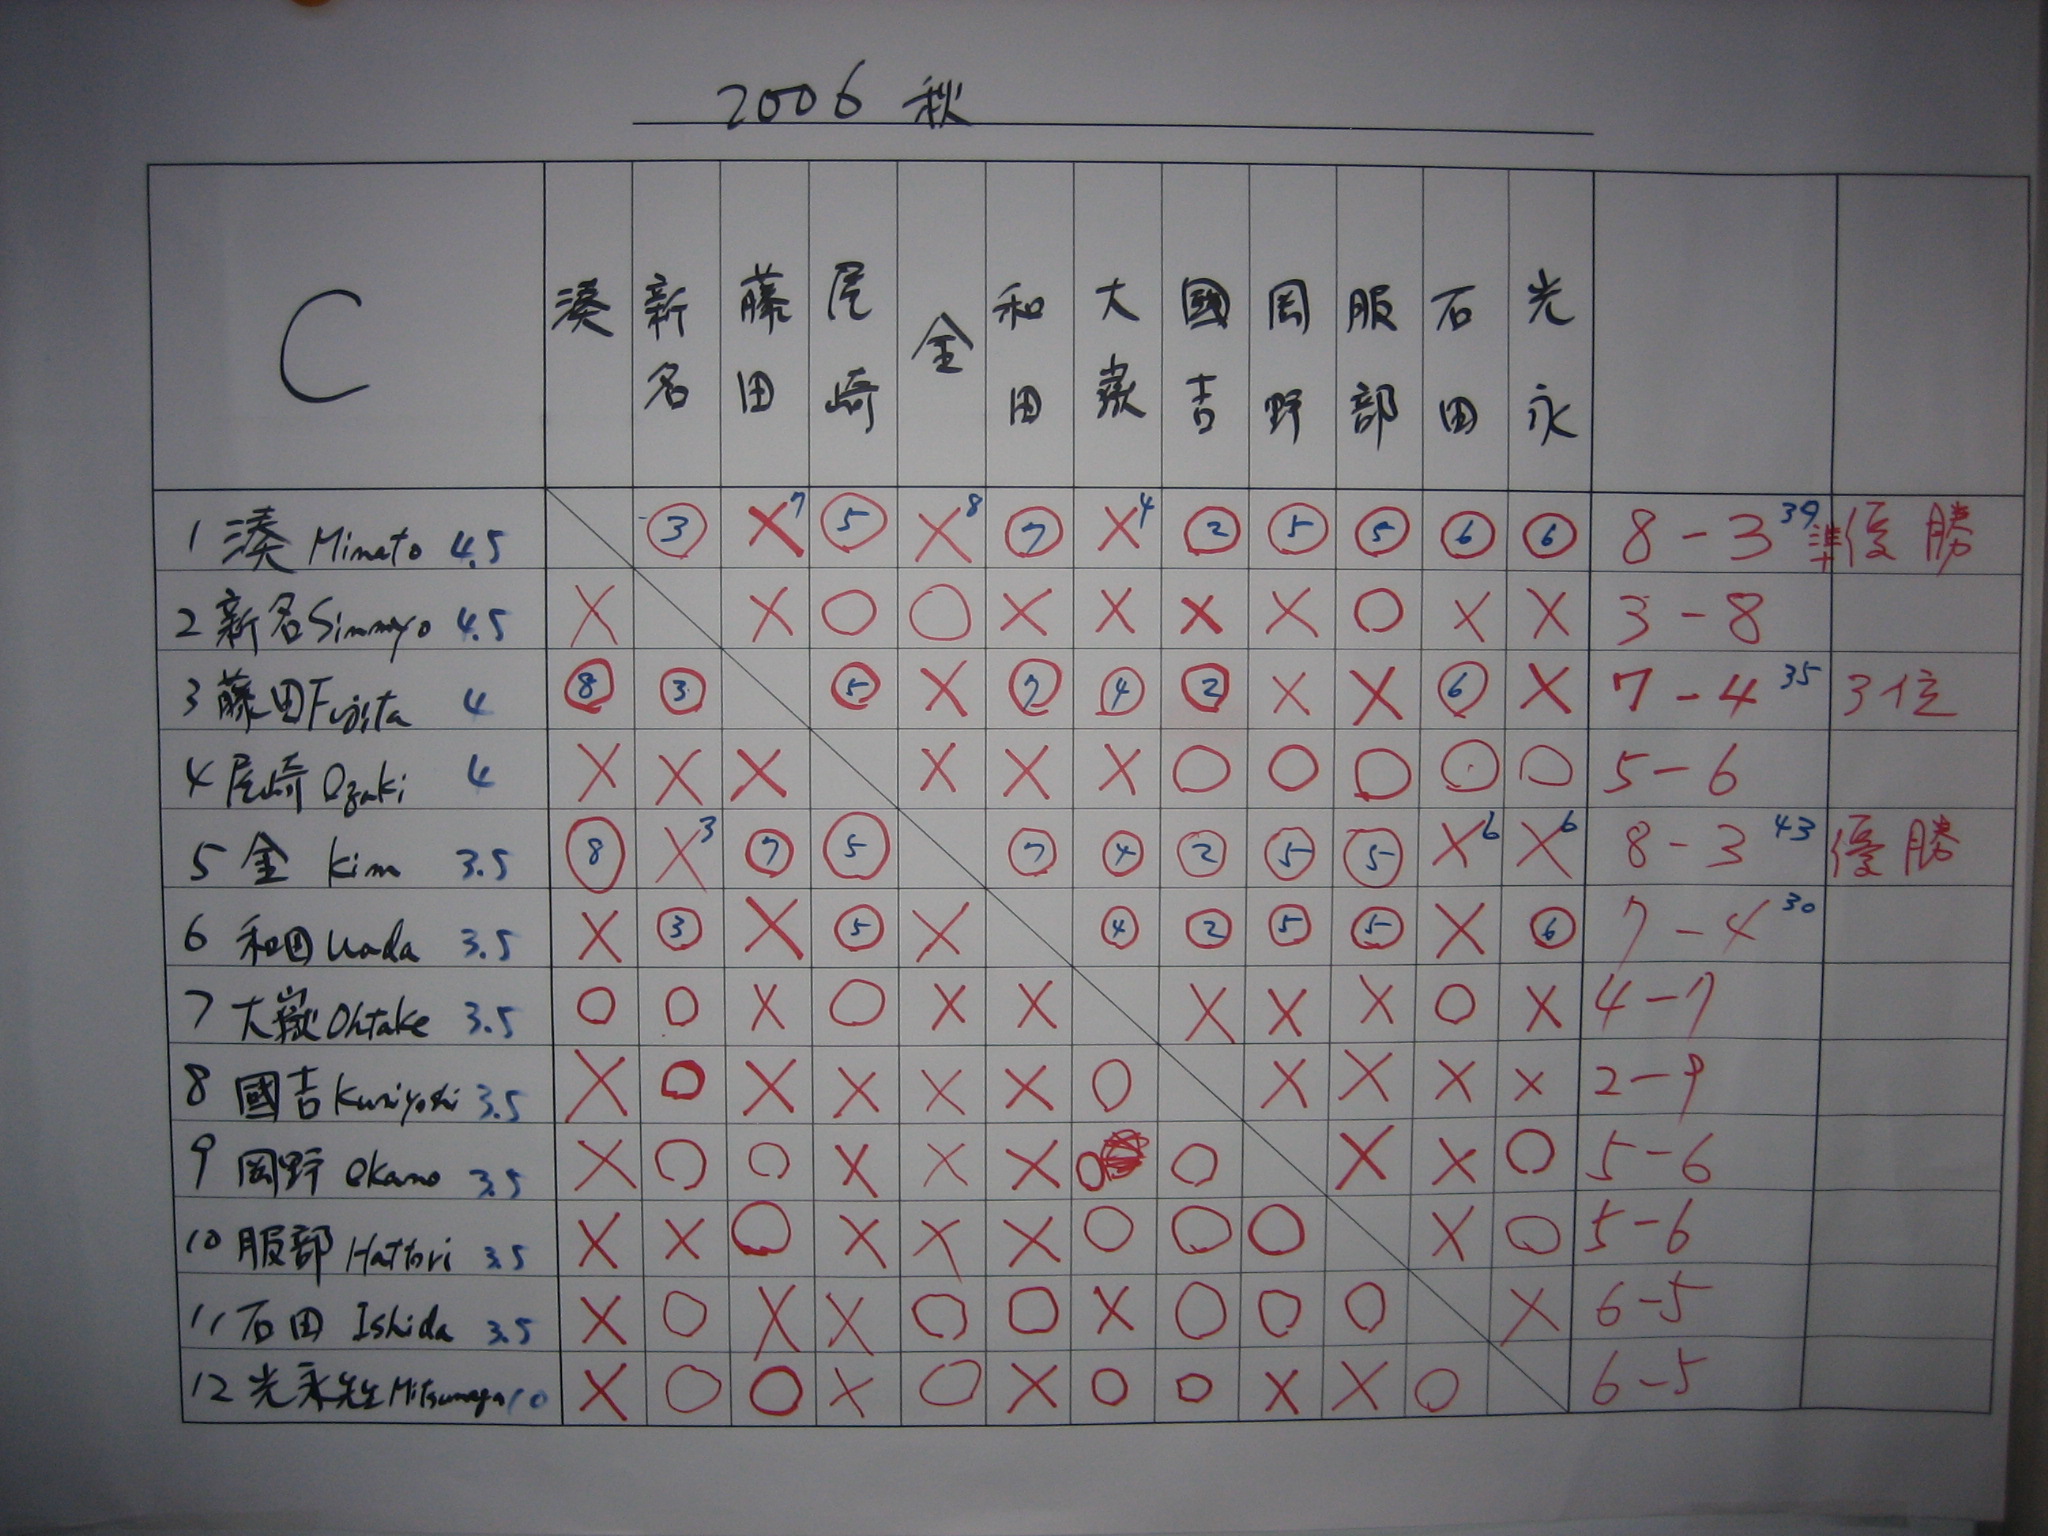 2006 秋
C 湊 新名 藤田 尾崎 金 和田 大嶽 國吉 岡野 服部 石田 光永
1 湊 Minato 4.5 ③ ×7 ⑤ ×8 ⑦ ×4 ② ⑤ ⑤ ⑥ ⑥ 8-3 39 準優勝
2 新名 Simmyo 4.5 × × ○ ○ × × × × ○ × × 3-8
3 藤田 Fujita 4 ⑧ ③ ⑤ × ⑦ ④ ② × × ⑥ × 7-4 35 3位
4 尾崎 Ozaki 4 × × × × × × ○ ○ ○ ○ ○ 5-6
5 金 Kim 3.5 ⑧ ×3 ⑦ ⑤ ⑦ ④ ② ⑤ ⑤ ×6 ×6 8-3 43 優勝
6 和田 Wada 3.5 × ③ × ⑤ × ④ ② ⑤ ⑤ × ⑥ 7-4 30
7 大嶽 Ohtake 3.5 ○ ○ × ○ × × × × × ○ × 4-7
8 國吉 Kuniyoshi 3.5 × ○ × × × × ○ × × × × 2-9
9 岡野 Okano 3.5 × ○ ○ × × × ○ ○ × × ○ 5-6
10 服部 Hattori 3.5 × × ○ × × × ○ ○ ○ × ○ 5-6
11 石田 Ishida 3.5 × ○ × × ○ ○ × ○ ○ ○ × 6-5
12 光永先生 Mitsunaga 10 × ○ ○ × ○ × ○ ○ × × ○ 6-5